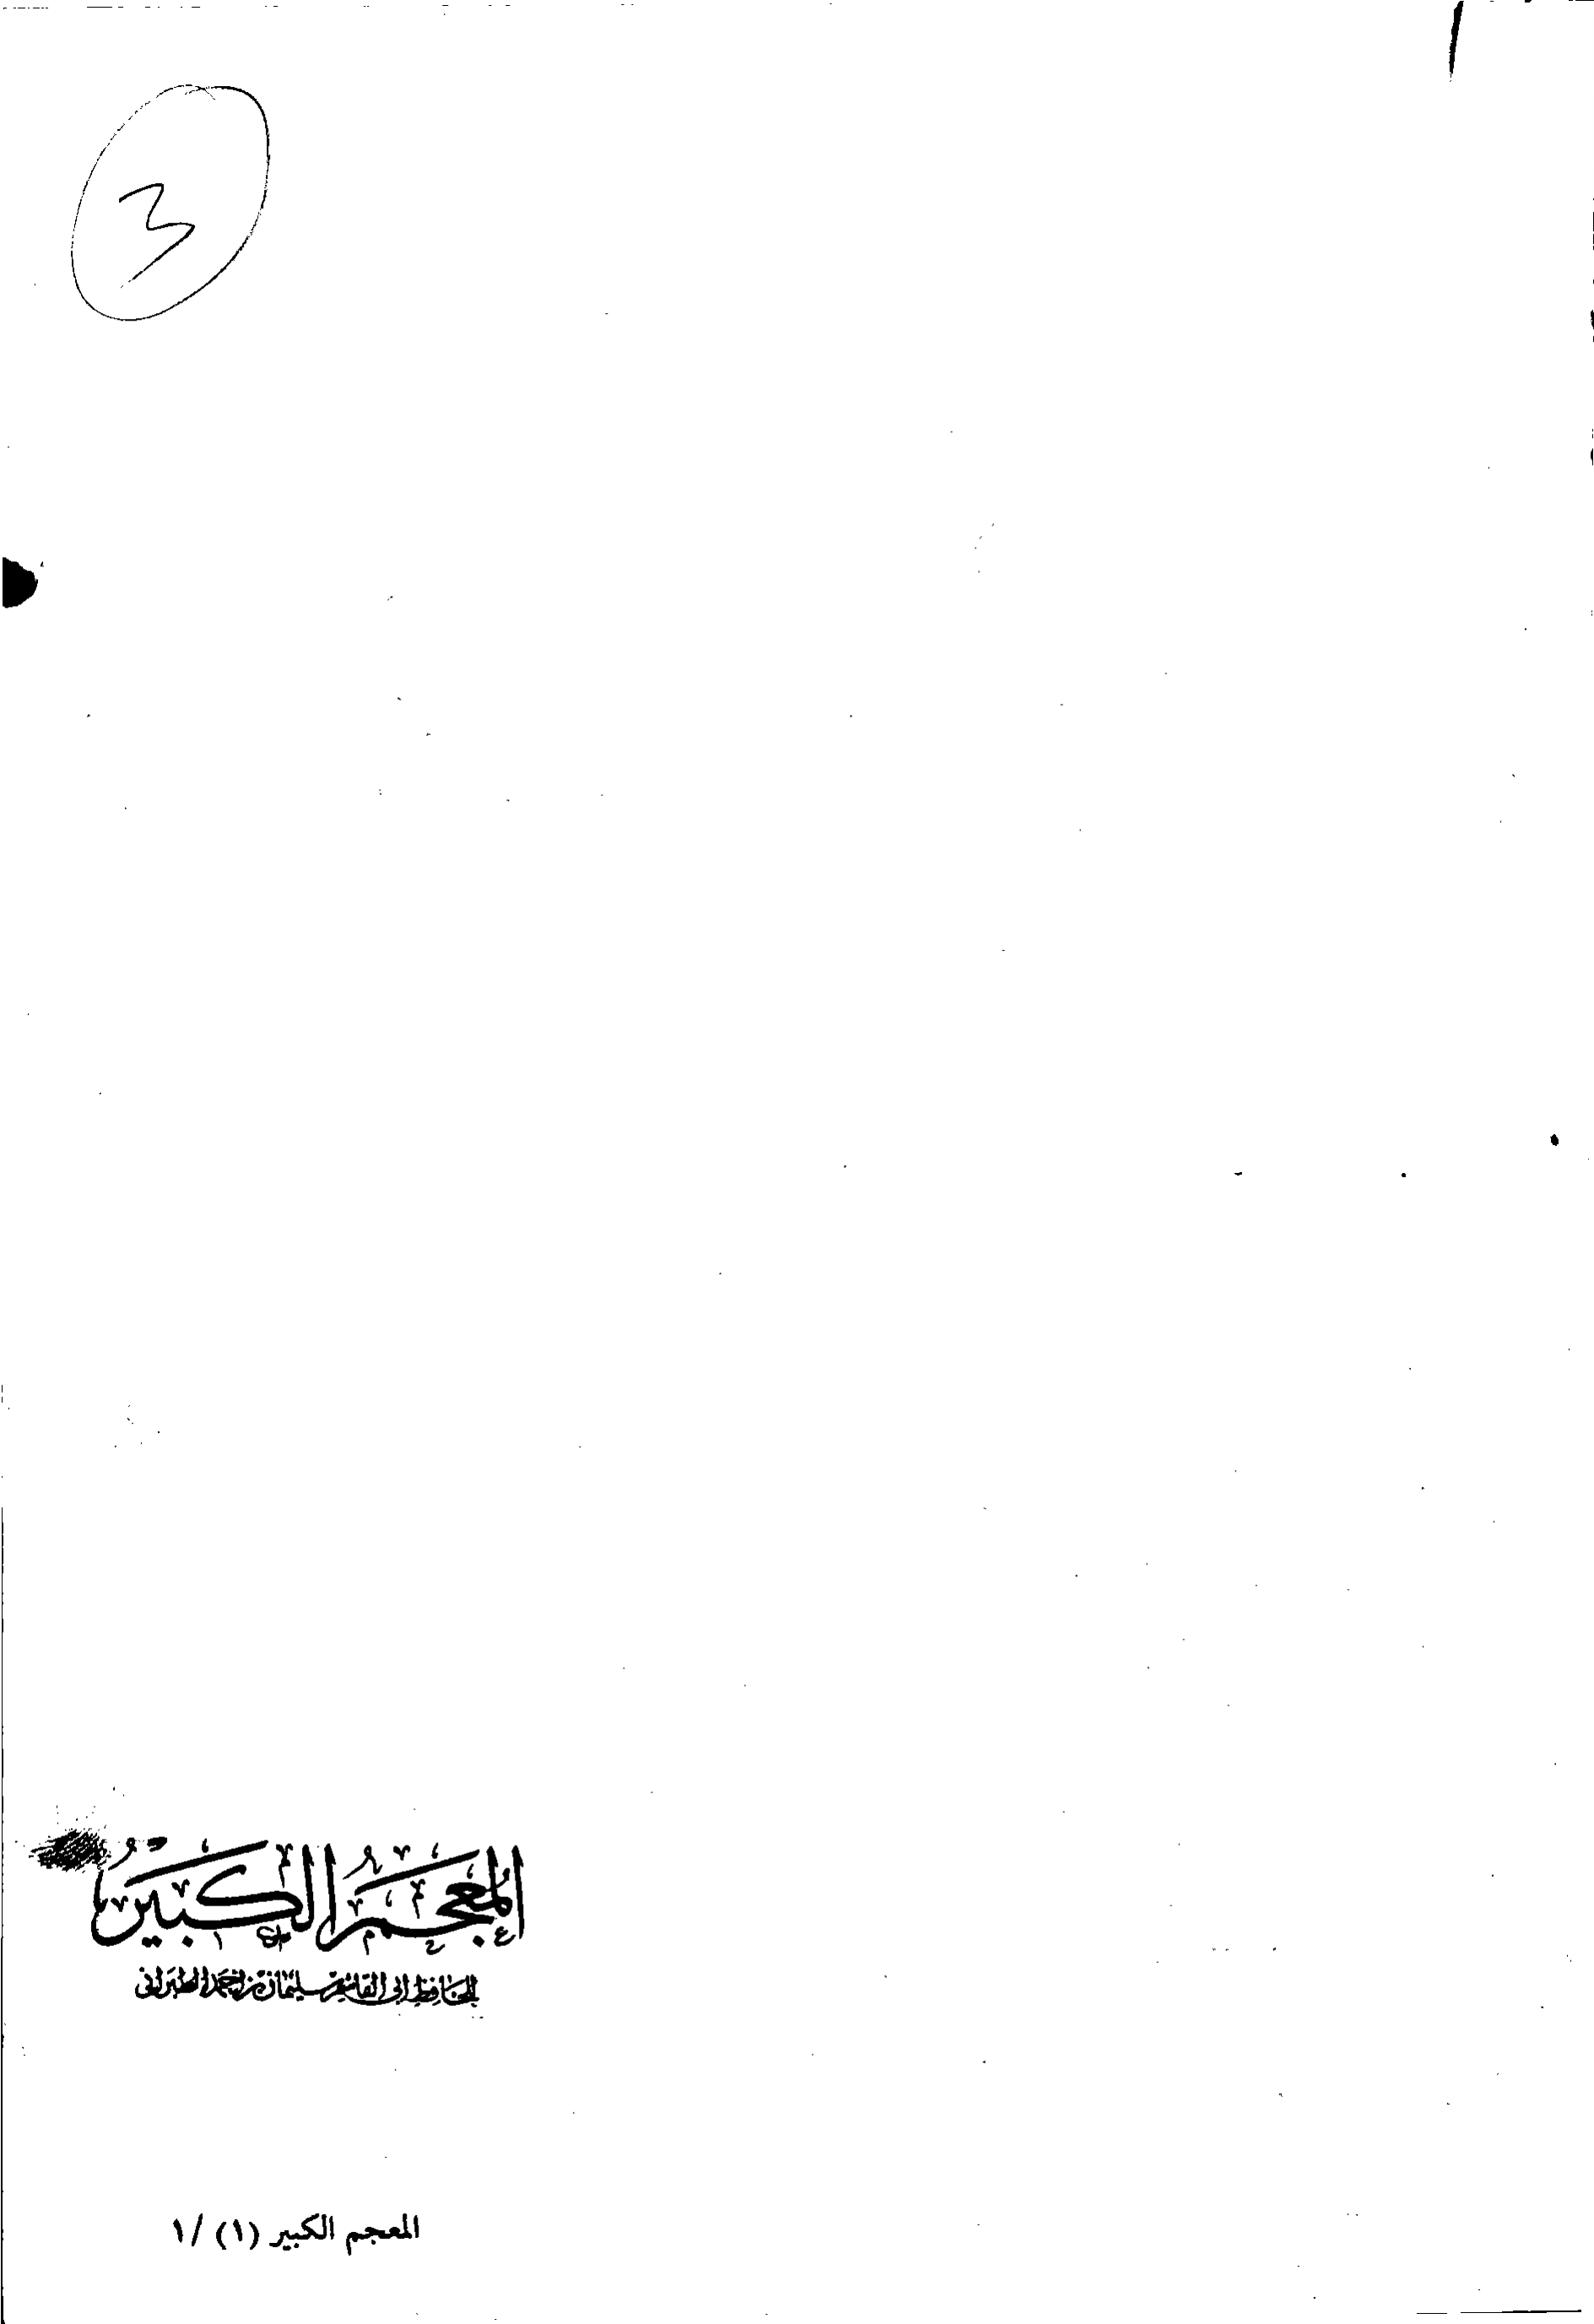 3
المعجم الكبير
للحافظ أبي القاسم سليمان بن أحمد الطبراني
المعجم الكبير (١) /١